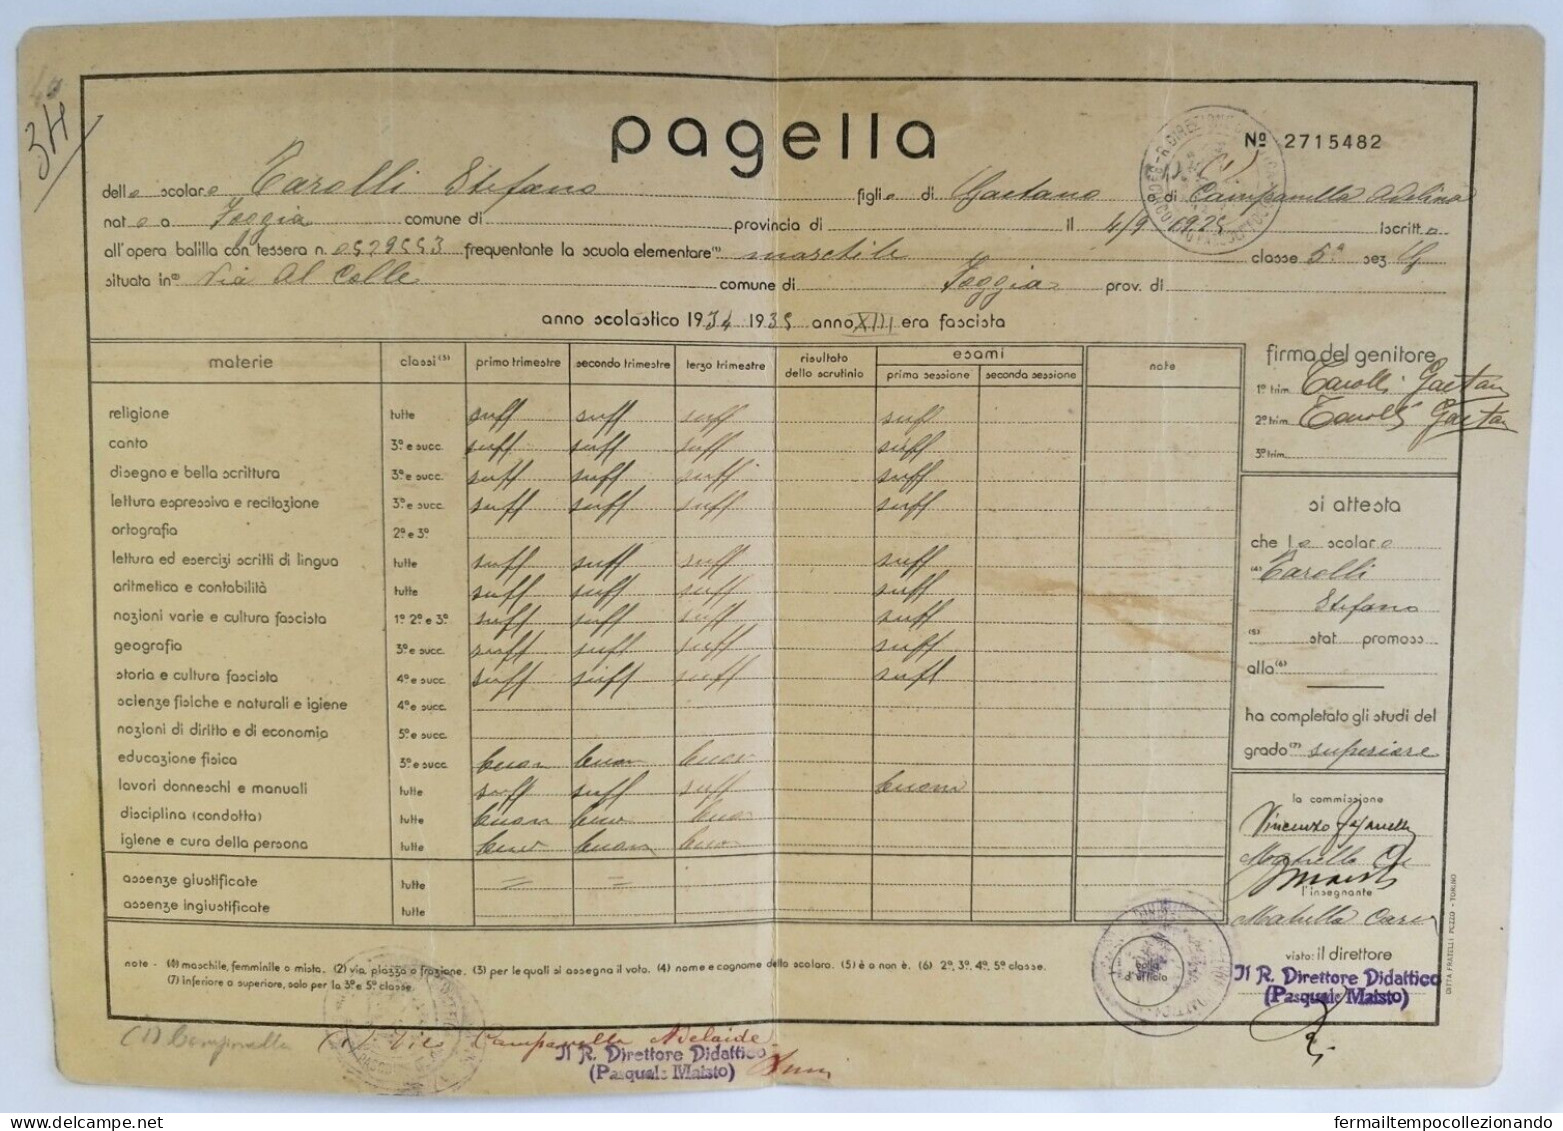 34
pagella
Nº 2715482
dello scolaro Tarolli Stefano figlio di Gaetano e di Campanella Adelina
nato a Foggia comune di provincia di il 4/9 1925 iscritto
all'opera balilla con tessera n. 0529553 frequentante la scuola elementare(1) maschile classe 5ª sez. G
situata in(2) Via Al Colle comune di Foggia prov. di
anno scolastico 1934 1935 anno XIII era fascista
materie classi(3) primo trimestre secondo trimestre terzo trimestre risultato dello scrutinio esami prima sessione seconda sessione note
religione tutte suff suff suff suff
canto 3ª e succ. suff suff suff suff
disegno e bella scrittura 3ª e succ. suff suff suff suff
lettura espressiva e recitazione 3ª e succ. suff suff suff suff
ortografia 2ª e 3ª
lettura ed esercizi scritti di lingua tutte suff suff suff suff
aritmetica e contabilità tutte suff suff suff suff
nozioni varie e cultura fascista 1ª 2ª e 3ª suff suff suff suff
geografia 3ª e succ. suff suff suff suff
storia e cultura fascista 4ª e succ. suff suff suff suff
scienze fisiche e naturali e igiene 4ª e succ.
nozioni di diritto e di economia 5ª e succ.
educazione fisica 3ª e succ. buon buon buon
lavori donneschi e manuali tutte suff suff suff buon
disciplina (condotta) tutte buon buo buo
igiene e cura della persona tutte buo buon buo
assenze giustificate tutte = =
assenze ingiustificate tutte
note - (1) maschile, femminile o mista. (2) via, piazza o frazione. (3) per le quali si assegna il voto. (4) nome e cognome dello scolaro. (5) è o non è. (6) 2ª, 3ª, 4ª, 5ª classe.
(7) inferiore o superiore, solo per la 3ª e 5ª classe.
firma del genitore
1º trim. Tarolli Gaetan
2º trim. Tarolli Gaetan
3º trim.
si attesta
che lo scolaro
(4) Tarolli
Stefano
(5) stat promoss
alla(6)
ha completato gli studi del
grado(7) superiore
la commissione
Vincenzo
l'insegnante
visto: il direttore
bollo d'ufficio
Il R. Direttore Didattico
(Pasquale Maisto)
DITTA FRATELLI POZZO - TORINO
(1) Campanella
Campanella Adelaide
Il R. Direttore Didattico
(Pasquale Maisto)
fermailtempocollezionando